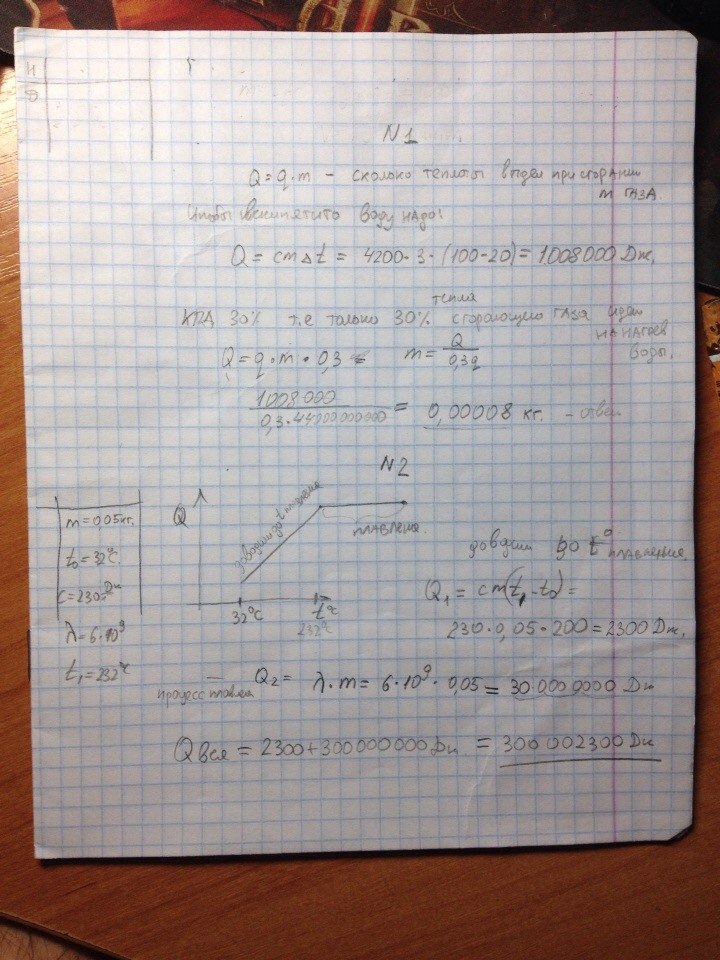 Н
D
N1
Q = q·m - сколько теплоты выдел при сгорании
m газа.
Чтобы вскипятить воду надо:
Q = cmΔt = 4200·3·(100-20) = 1008000 Дж.
КПД 30% т.е только 30% тепла сгорающего газа идет
на нагрев
воды.
Q = q·m·0,3 m = Q/0,3q
1008000/0,3·44000000000 = 0,00008 кг. - ответ
N2
m = 0,05 кг.
t₀ = 32°C
C = 230 Дж
λ = 6·10⁹
t₁ = 232°C
Q
доводим до t плавления
плавление.
32°C
t°C
232°C
доводим до t° плавления.
Q₁ = cm(t₁-t₀) =
230·0,05·200 = 2300 Дж.
процесс плавлен
Q₂ = λ·m = 6·10⁹·0,05 = 300000000 Дж
Qвся = 2300 + 300000000 Дж = 300 002300 Дж